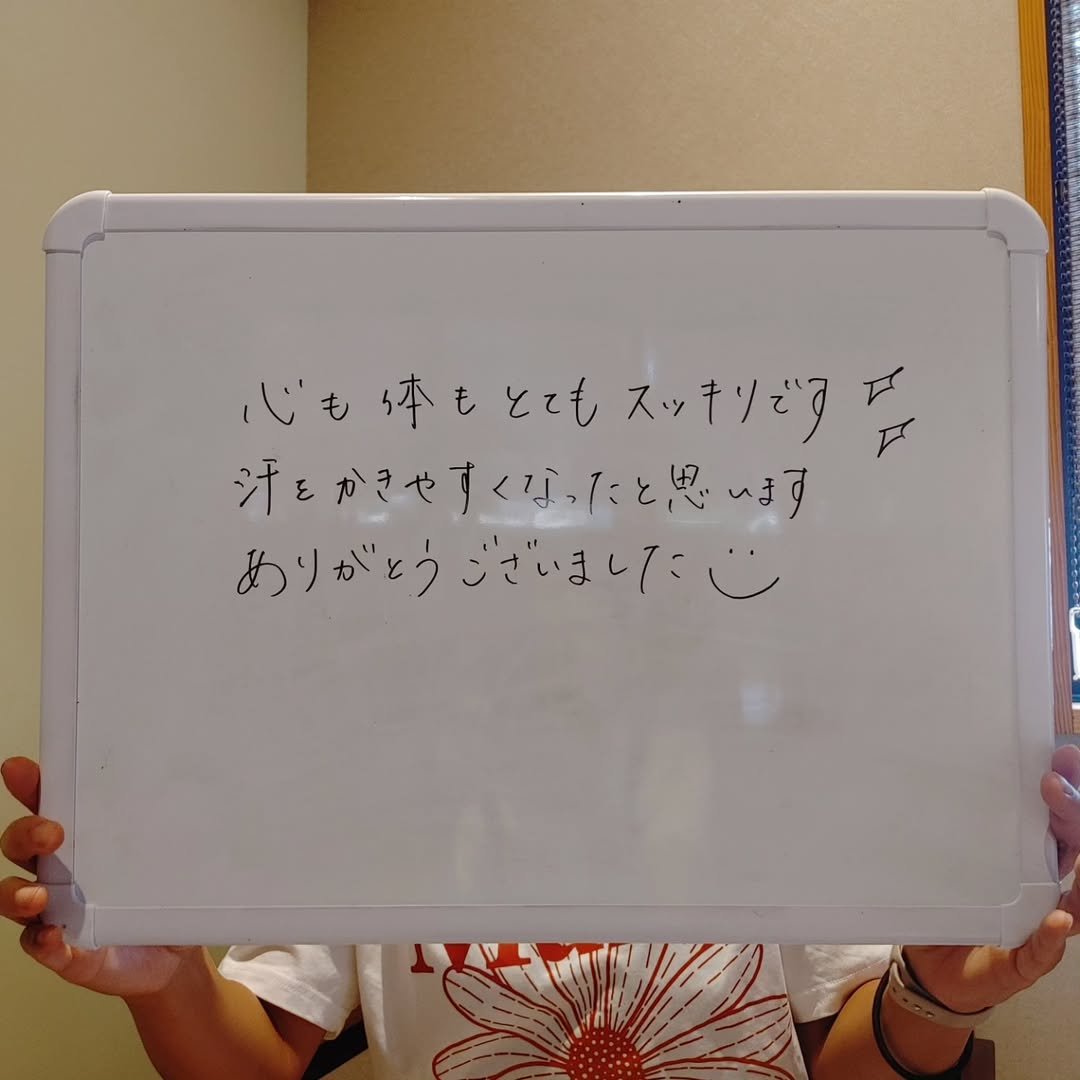 心も体もとてもスッキリです
汗をかきやすくなったと思います
ありがとうございました